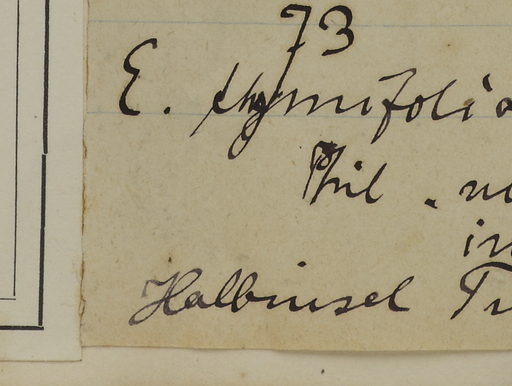 73
E. thymifolia
Phil.
Halbinsel